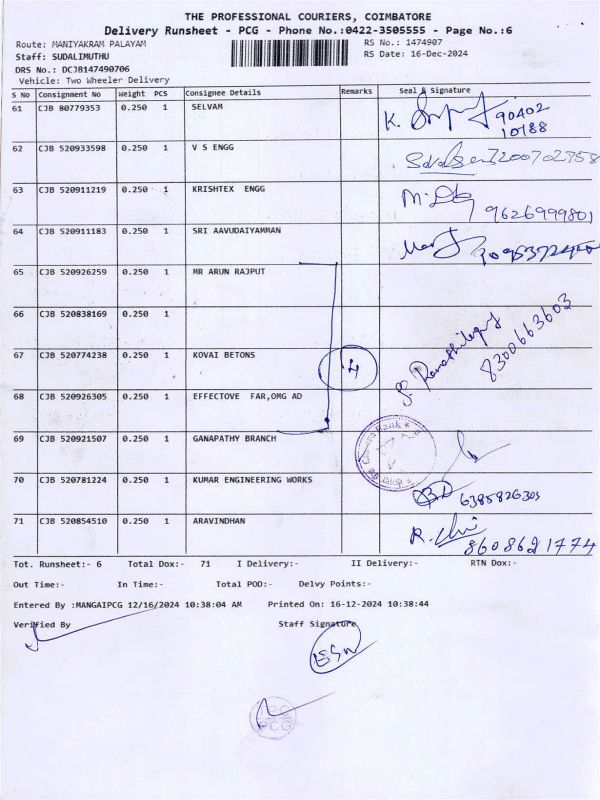 THE PROFESSIONAL COURIERS, COIMBATORE
Delivery Runsheet - PCG - Phone No.:0422-3505555 - Page No.:6
Route: MANIYAKRAM PALAYAM RS No.: 1474907
Staff: SUDALIMUTHU RS Date: 16-Dec-2024
DRS No.: DCJB147490706
Vehicle: Two Wheeler Delivery
S No Consignment No Weight PCS Consignee Details Remarks Seal & Signature
61 CJB 80779353 0.250 1 SELVAM K. 90402
10188
62 CJB 520933598 0.250 1 V S ENGG
63 CJB 520911219 0.250 1 KRISHTEX ENGG 9626999801
64 CJB 520911183 0.250 1 SRI AAVUDAIYAMMAN
65 CJB 520926259 0.250 1 MR ARUN RAJPUT
66 CJB 520838169 0.250 1 8300663603
67 CJB 520774238 0.250 1 KOVAI BETONS
68 CJB 520926305 0.250 1 EFFECTOVE FAR,OMG AD
69 CJB 520921507 0.250 1 GANAPATHY BRANCH
70 CJB 520781224 0.250 1 KUMAR ENGINEERING WORKS
71 CJB 520854510 0.250 1 ARAVINDHAN R. 8608621774
Tot. Runsheet:- 6 Total Dox:- 71 I Delivery:- II Delivery:- RTN Dox:-
Out Time:- In Time:- Total POD:- Delvy Points:-
Entered By :MANGAIPCG 12/16/2024 10:38:04 AM Printed On: 16-12-2024 10:38:44
Verified By Staff Signature
PCG